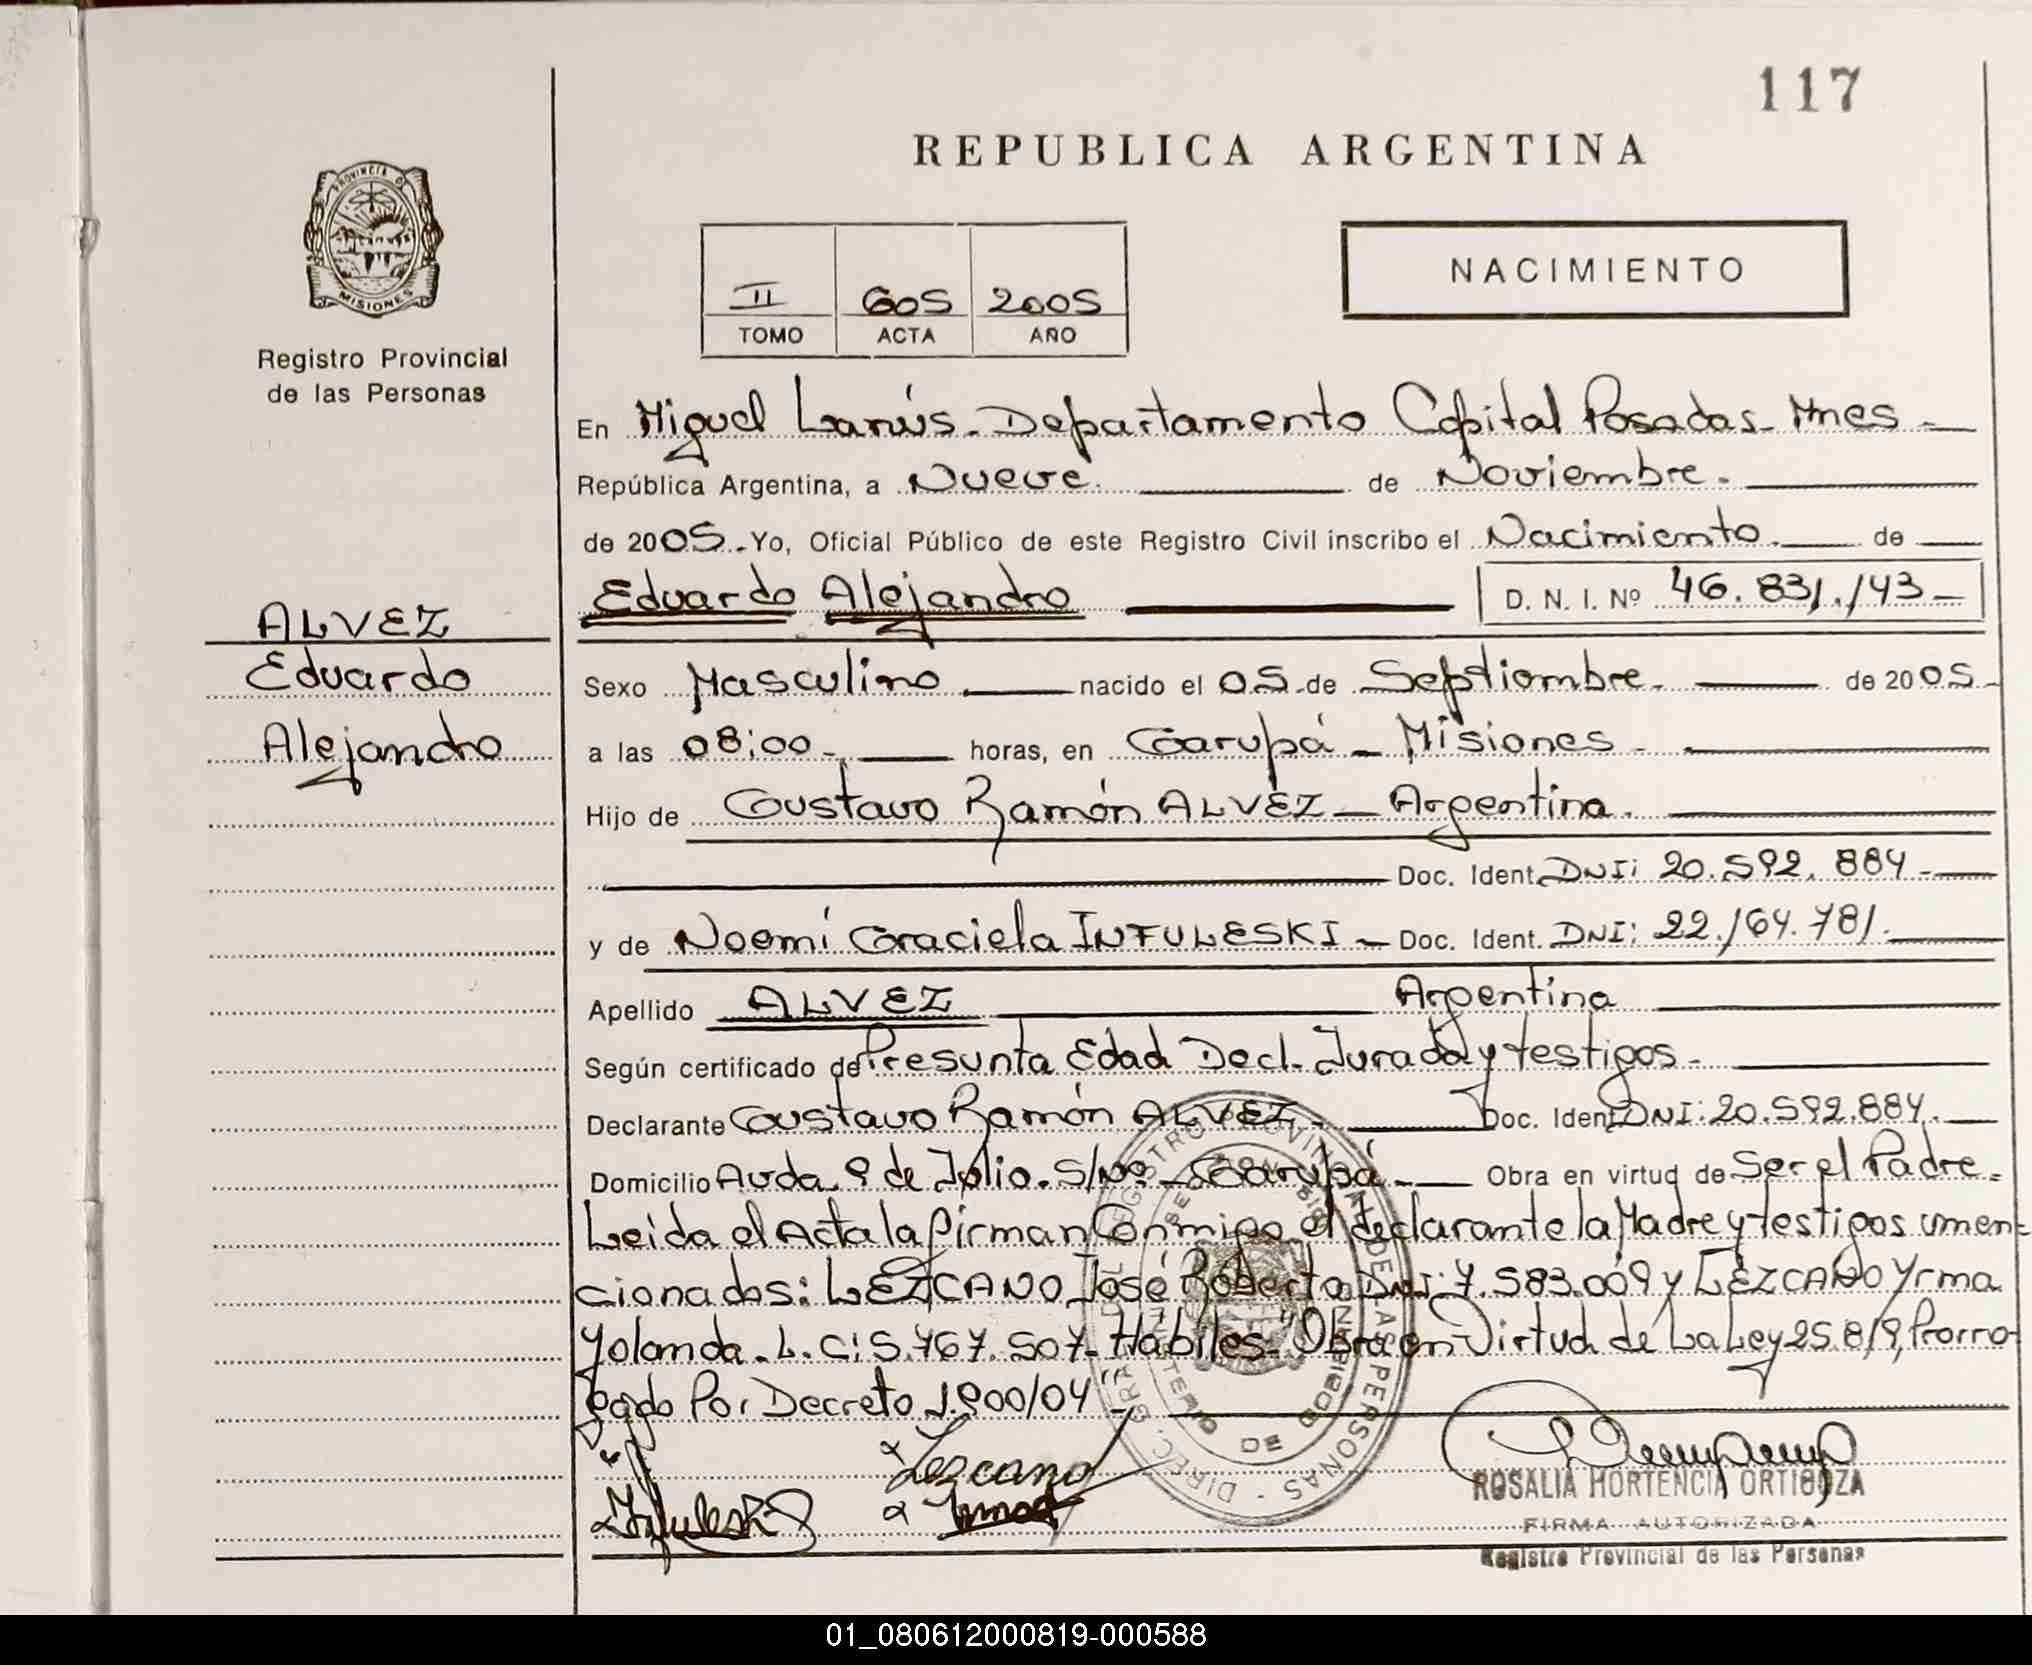 117
REPUBLICA ARGENTINA
PROVINCIA D
MISIONES
NACIMIENTO
II 605 2005
TOMO ACTA AÑO
Registro Provincial
de las Personas
En Miguel Lanús - Departamento Capital Posadas - Mnes -
República Argentina, a Nueve. de Noviembre.
de 2005. Yo, Oficial Público de este Registro Civil inscribo el Nacimiento. de
Eduardo Alejandro D. N. I. Nº 46.831.143 -
ALVEZ
Eduardo
Alejandro
Sexo Masculino nacido el 05 de Septiembre. de 2005 -
a las 08:00 - horas, en Garupá - Misiones -
Hijo de Gustavo Ramón ALVEZ - Argentina.
Doc. Ident. DNI: 20.592.884 -
y de Noemí Graciela INFULESKI - Doc. Ident. DNI: 22.164.781.
Apellido ALVEZ Argentina
Según certificado de Presunta Edad Decl. Jurada y testigos -
Declarante Gustavo Ramón ALVEZ - Doc. Ident. DNI: 20.592.884.
Domicilio Avda. 9 de Julio. S/Nº - Garupá - Obra en virtud de Ser el Padre.
Leida el Acta la firman Conmigo el declarante la Madre y testigos umen-
cionados: LEZCANO José Roberto DNI: 7.583.009 y LEZCANO Yrma
Yolanda. L.C: 5.767.507 - Hábiles - "Obra en Virtud de La Ley 25.819, Prorro-
gado Por Decreto 1.900/04"
Lezcano
Infuleski
Irma
ROSALIA HORTENCIA ORTIGOZA
FIRMA AUTORIZADA
Registro Provincial de las Personas
01_080612000819-000588